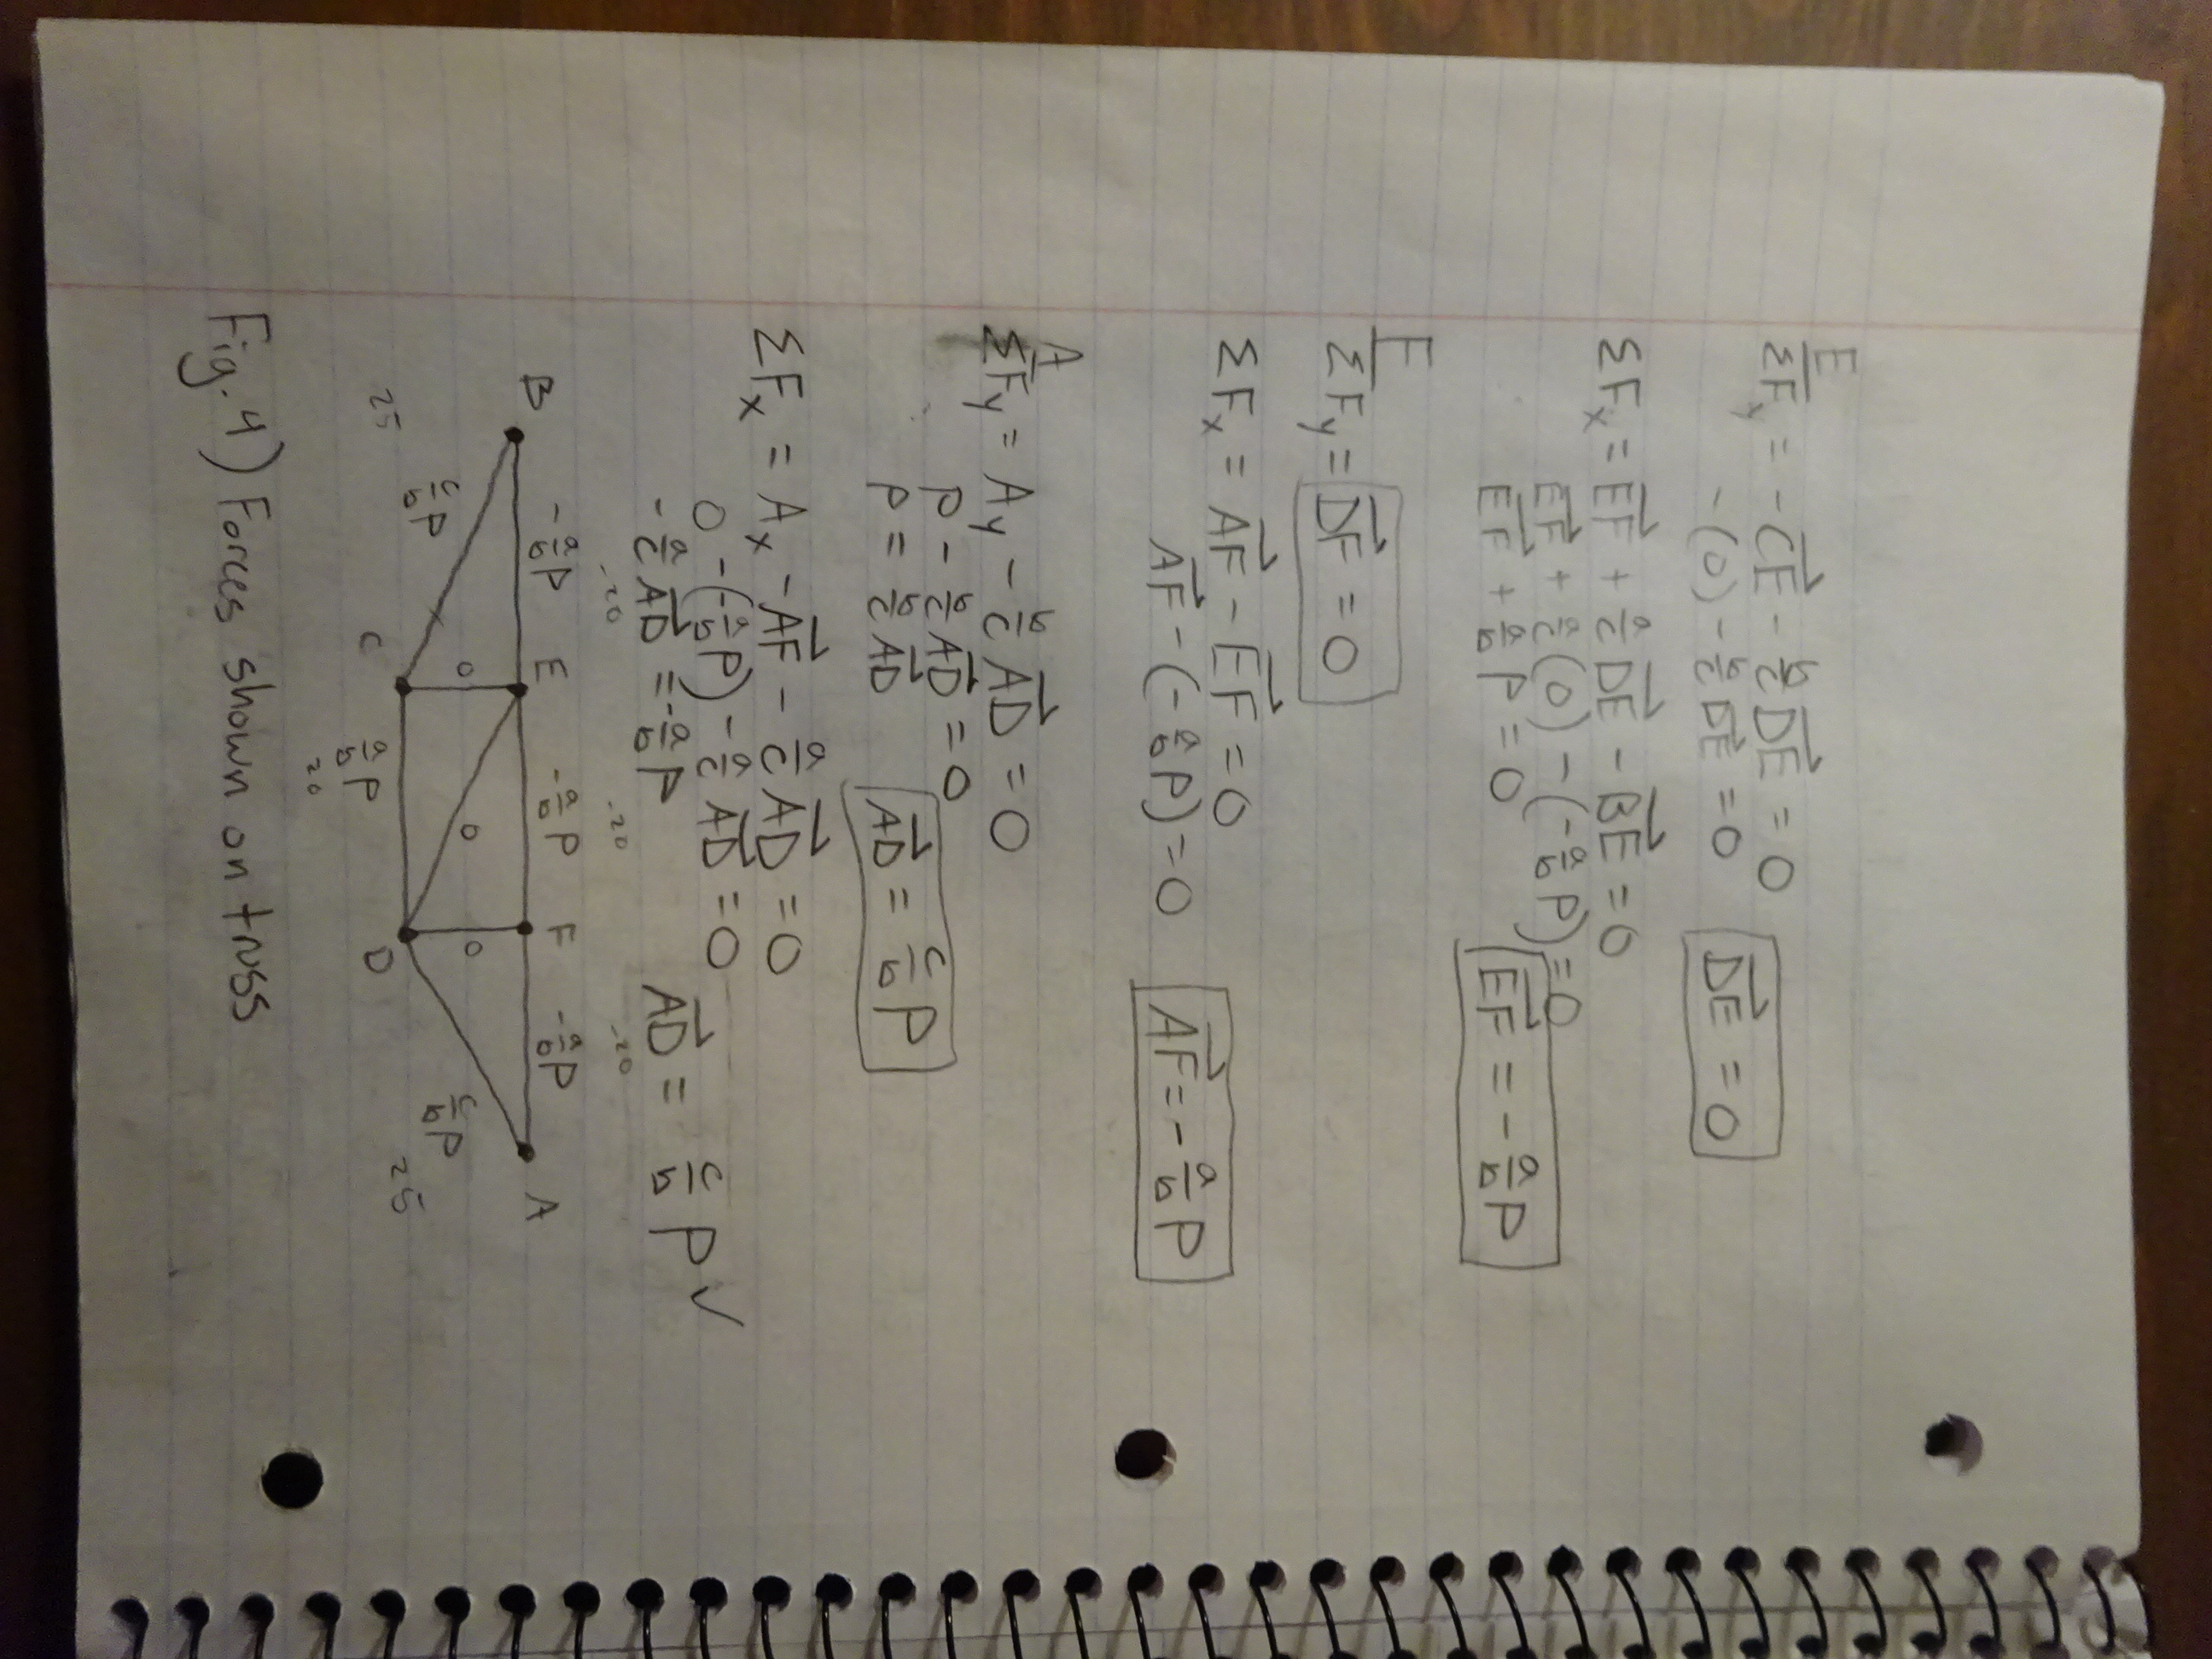 E
ΣFy = -CE - b/c DE = 0
-(0) - b/c DE = 0 DE = 0
ΣFx = EF + a/c DE - BE = 0
EF + a/c(0) - (-a/b P) = 0
EF + a/b P = 0 EF = -a/b P
F
ΣFy = DF = 0
ΣFx = AF - EF = 0
AF - (-a/b P) = 0 AF = -a/b P
A
ΣFy = Ay - b/c AD = 0
P - b/c AD = 0
P = b/c AD AD = c/b P
ΣFx = Ax - AF - a/c AD = 0
0 - (-a/b P) - a/c AD = 0
-a/c AD = -a/b P AD = c/b P ✓
-20 -20 -20
-a/b P -a/b P -a/b P
B E F A
0 0 0
c/b P c/b P
C D
25 a/b P 25
20
Fig. 4) Forces shown on truss